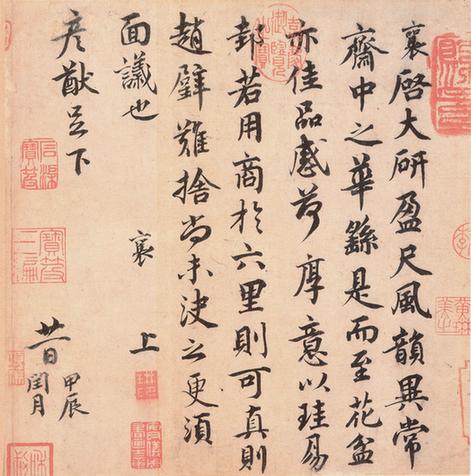 襄啓大研盈尺風韻異常
齋中之華繇是而至花盆
亦佳品感荷厚意以珪易
邽若用商於六里則可真則
趙璧難捨尚未決之更須
面議也 襄 上
彥猷足下
廿一日 甲辰閏月
石渠寶笈
寶笈三編